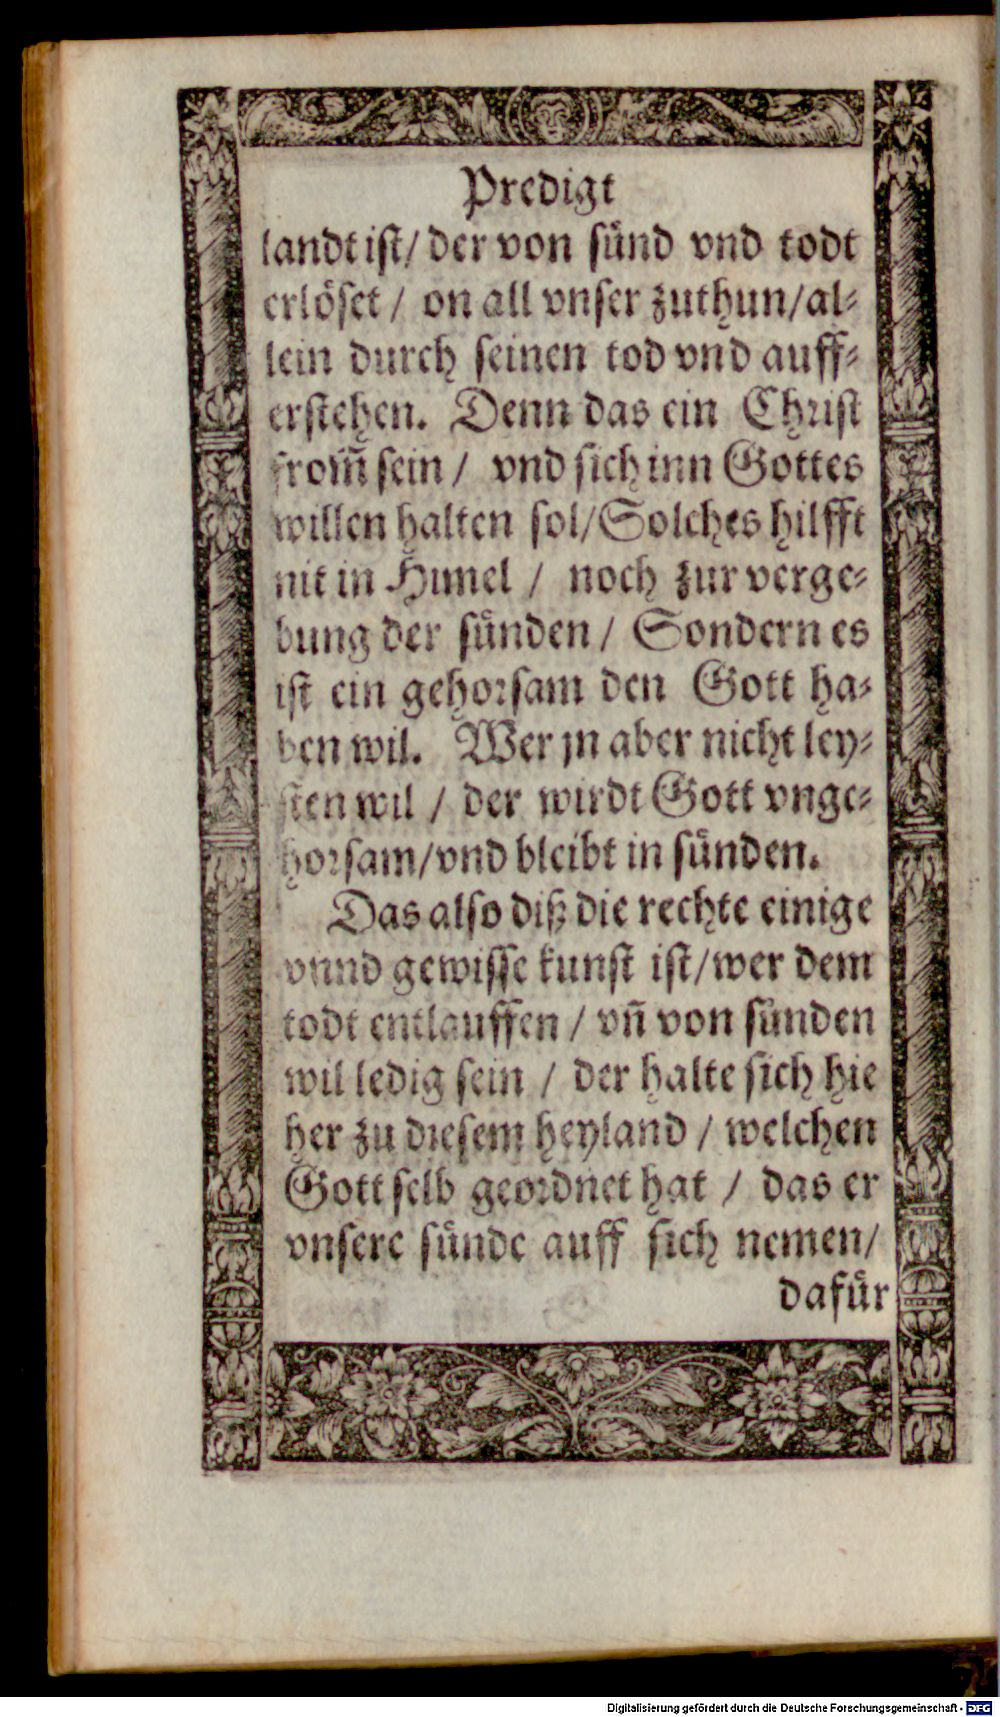 Predigt
landt iſt/ der von ſuͤnd vnd todt
erloͤſet / on all vnſer zuthun/al⸗
lein durch ſeinen tod vnd auff⸗
erſtehen. Denn das ein Chꝛiſt
from̃ ſein / vnd ſich inn Gottes
willen halten ſol/Solches hilfft
nit in Himel / noch zur verge⸗
bung der ſuͤnden / Sondern es
iſt ein gehoꝛſam den Gott ha⸗
ben wil. Wer jn aber nicht ley⸗
ſten wil / der wirdt Gott vnge⸗
hoꝛſam/vnd bleibt in ſuͤnden.
Das alſo diß die rechte einige
vnnd gewiſſe kunſt iſt/wer dem
todt entlauffen / vñ von ſuͤnden
wil ledig ſein / der halte ſich hie
her zu dieſem heyland / welchen
Gott ſelb geoꝛdnet hat / das er
vnſere ſuͤnde auff ſich nemen/
dafuͤr
Digitalisierung gefördert durch die Deutsche Forschungsgemeinschaft - DFG